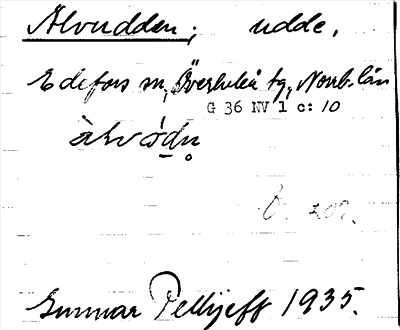 Alvudden; udde.
Edefors sn, Överluleå tg, Norrb. län
G 36 NV 1 c: 10
Gunnar Pellijeff 1935.